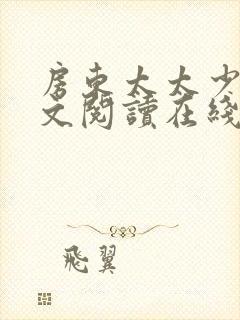 房东太太少
文閱讀在綫
飛翼